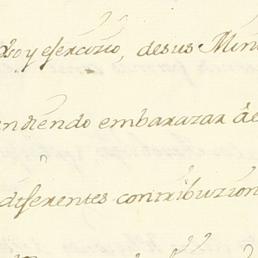 uso y exercizio, de sus Min
ndiendo embarazar de
diferentes contribuzion